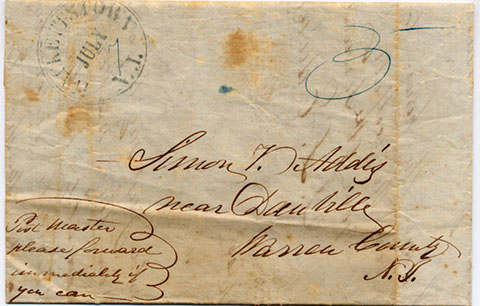 HACKETTSTOWN
N.J.
JULY
7
5
Simon V. Addis
near Danville
Warren County
N.J.
Post Master
please forward
immediately if
you can